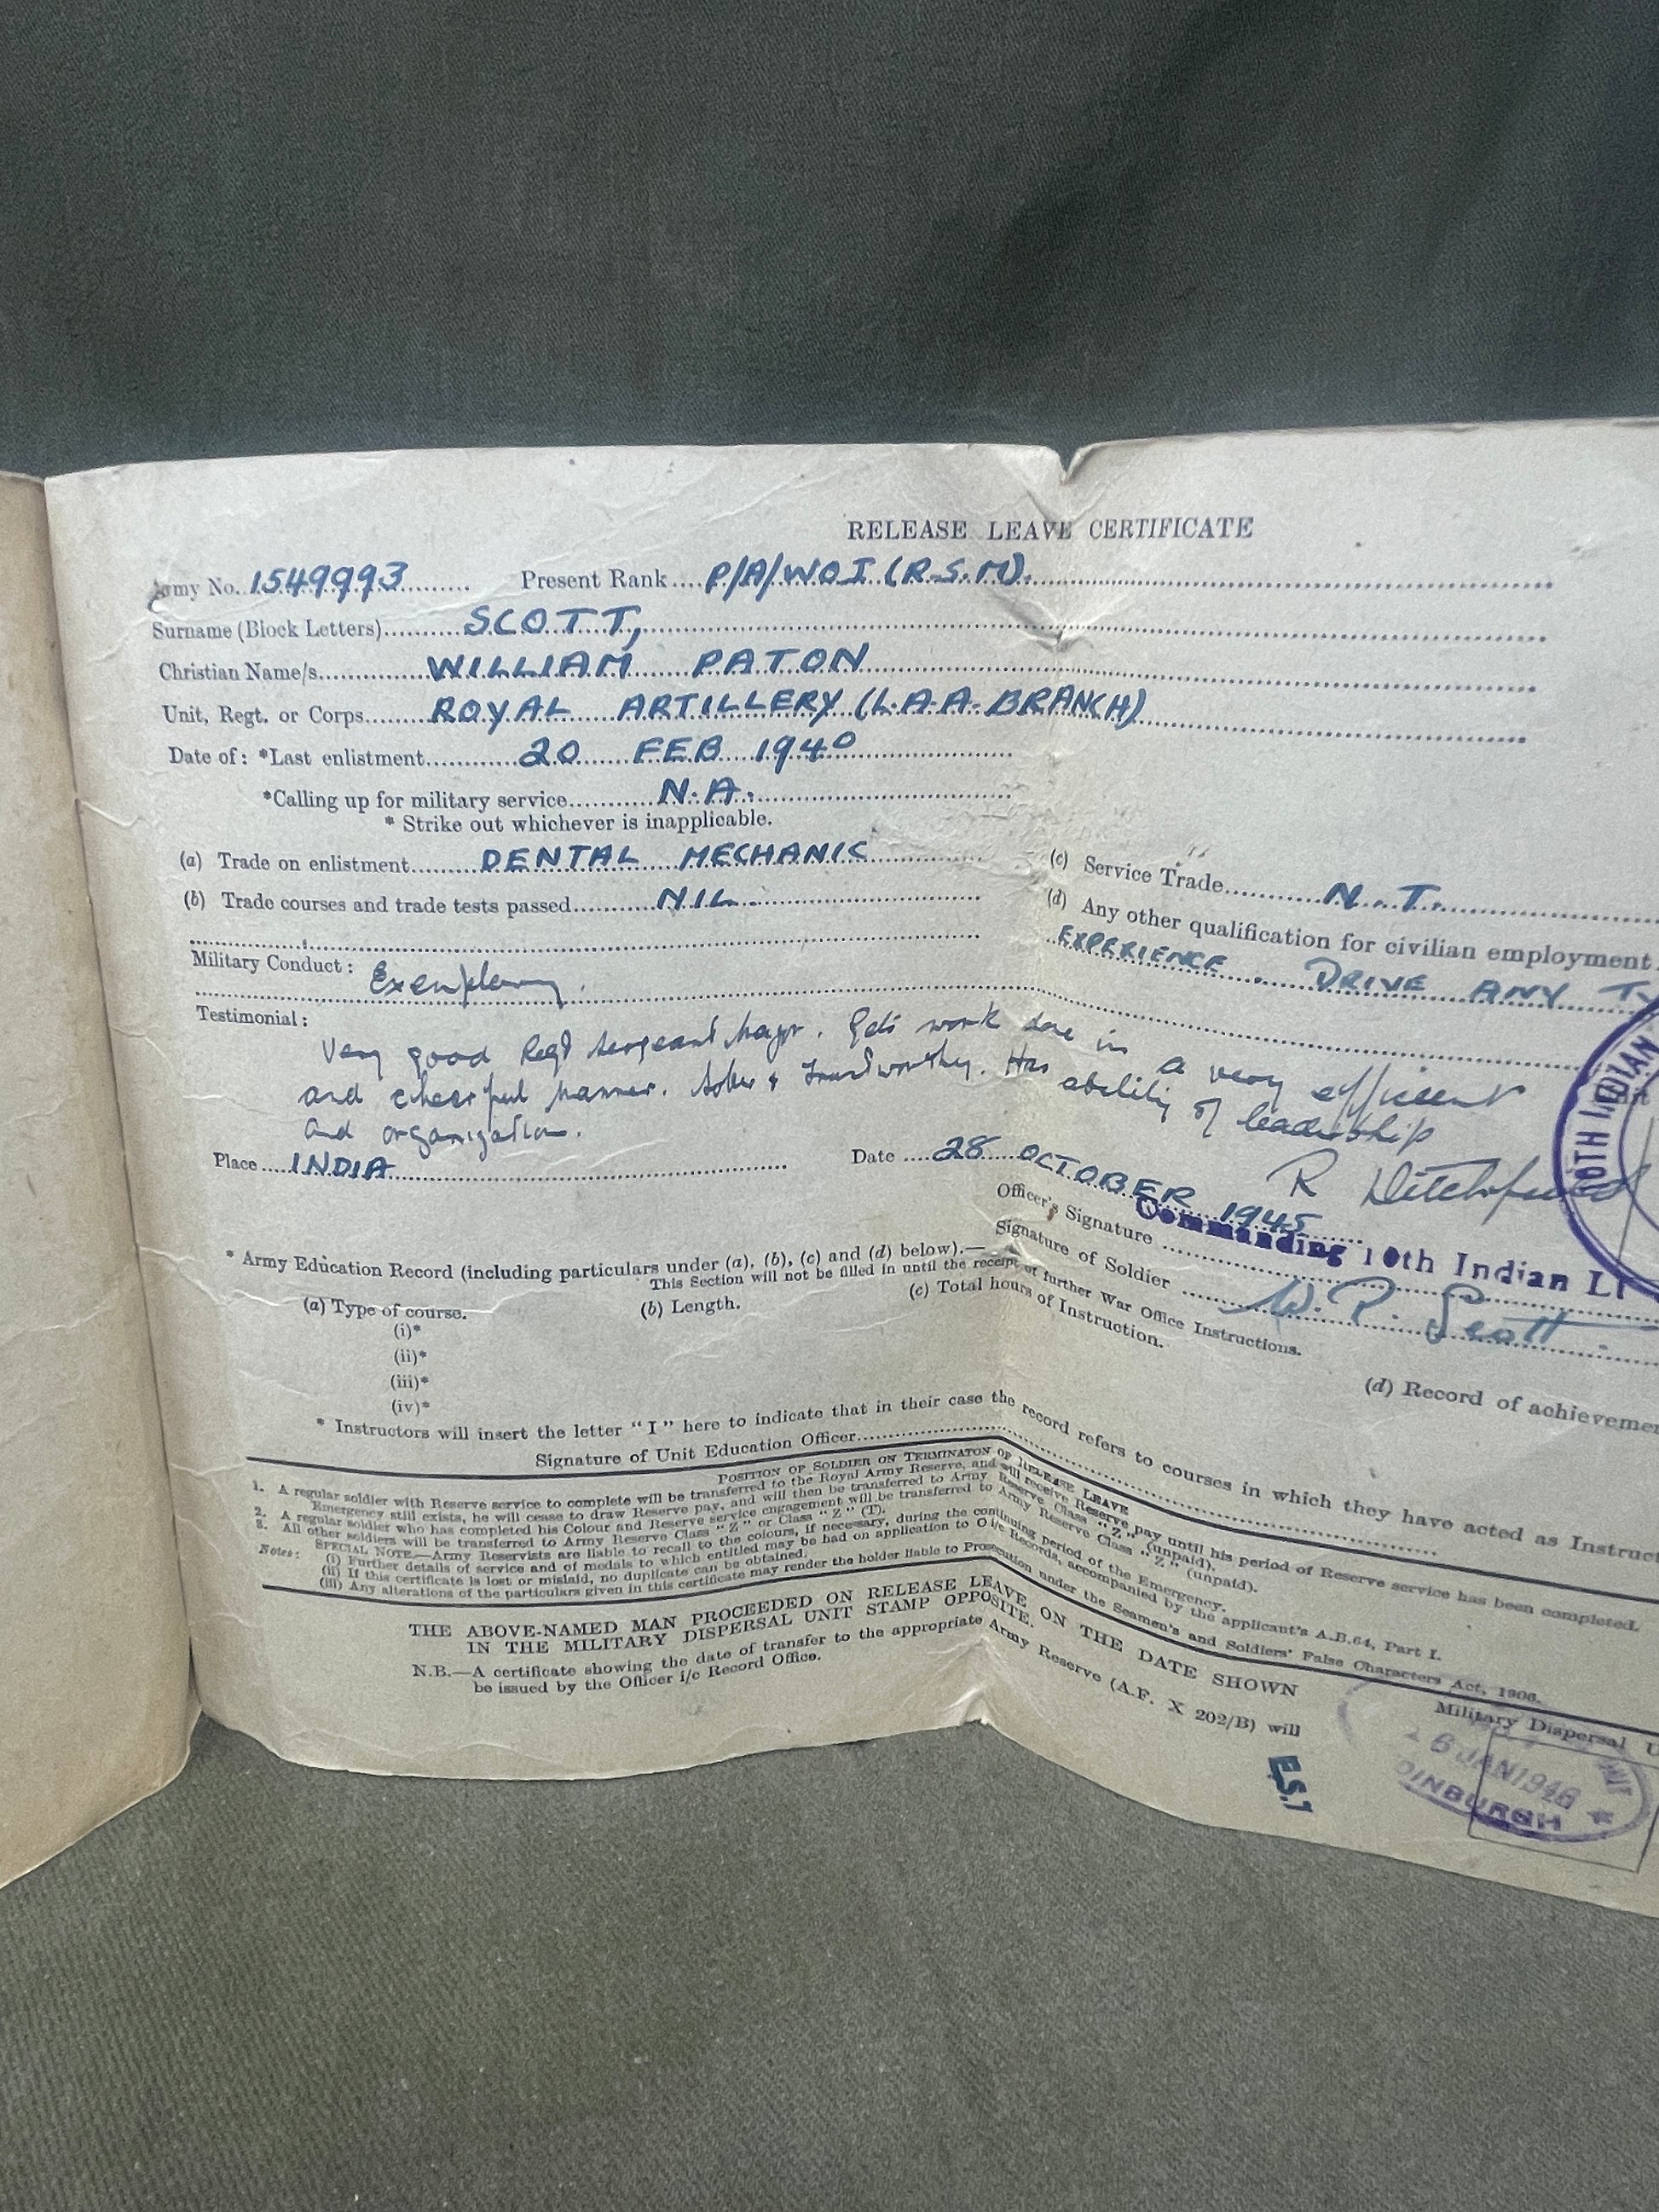 RELEASE LEAVE CERTIFICATE
Army No. 1549993 Present Rank P/A/WOI (R.S.M).
Surname (Block Letters) SCOTT,
Christian Name/s WILLIAM PATON
Unit, Regt. or Corps ROYAL ARTILLERY (L.A.A. BRANCH)
Date of: *Last enlistment 20 FEB 1940
*Calling up for military service N.A.
* Strike out whichever is inapplicable.
(a) Trade on enlistment DENTAL MECHANIC
(c) Service Trade N.T.
(b) Trade courses and trade tests passed NIL.
(d) Any other qualification for civilian employment
EXPERIENCE. DRIVE ANY
Military Conduct: Exemplary.
Testimonial:
Very good Regt Sergeant Major. Gets work done in a very efficient
and cheerful manner. Sober & trustworthy. Has ability of leadership
and organization.
Place INDIA Date 28 OCTOBER 1945
10TH INDIAN
Officer's Signature R
Commanding 10th Indian
Signature of Soldier W. P. Scott.
* Army Education Record (including particulars under (a), (b), (c) and (d) below).—
This Section will not be filled in until the receipt of further War Office Instructions.
(a) Type of course. (b) Length. (c) Total hours of Instruction. (d) Record of
(i)*
(ii)*
(iii)*
(iv)*
* Instructors will insert the letter "I" here to indicate that in their case the record refers to courses in which they have acted as
Signature of Unit Education Officer
POSITION OF SOLDIER ON TERMINATON OF RELEASE LEAVE
1. A regular soldier with Reserve service to complete will be transferred to the Royal Army Reserve, and will receive Reserve pay until his period of Reserve service has been completed.
Emergency still exists, he will cease to draw Reserve pay, and will then be transferred to Army Reserve Class "Z" (unpaid).
2. A regular soldier who has completed his Colour and Reserve service engagement will be transferred to Army Reserve Class "Z" (unpaid).
3. All other soldiers will be transferred to Army Reserve Class "Z" or Class "Z" (T).
SPECIAL NOTE.—Army Reservists are liable to recall to the colours, if necessary, during the continuing period of the Emergency.
Notes: (i) Further details of service and of medals to which entitled may be had on application to O i/c Records, accompanied by the applicant's A.B.64, Part I.
(ii) If this certificate is lost or mislaid, no duplicate can be obtained.
(iii) Any alterations of the particulars given in this certificate may render the holder liable to Prosecution under the Seamen's and Soldiers' False Characters Act, 1906.
THE ABOVE-NAMED MAN PROCEEDED ON RELEASE LEAVE ON THE DATE SHOWN
IN THE MILITARY DISPERSAL UNIT STAMP OPPOSITE.
N.B.—A certificate showing the date of transfer to the appropriate Army Reserve (A.F. X 202/B) will
be issued by the Officer i/c Record Office.
Military Dispersal
JAN 1946
E.S.1